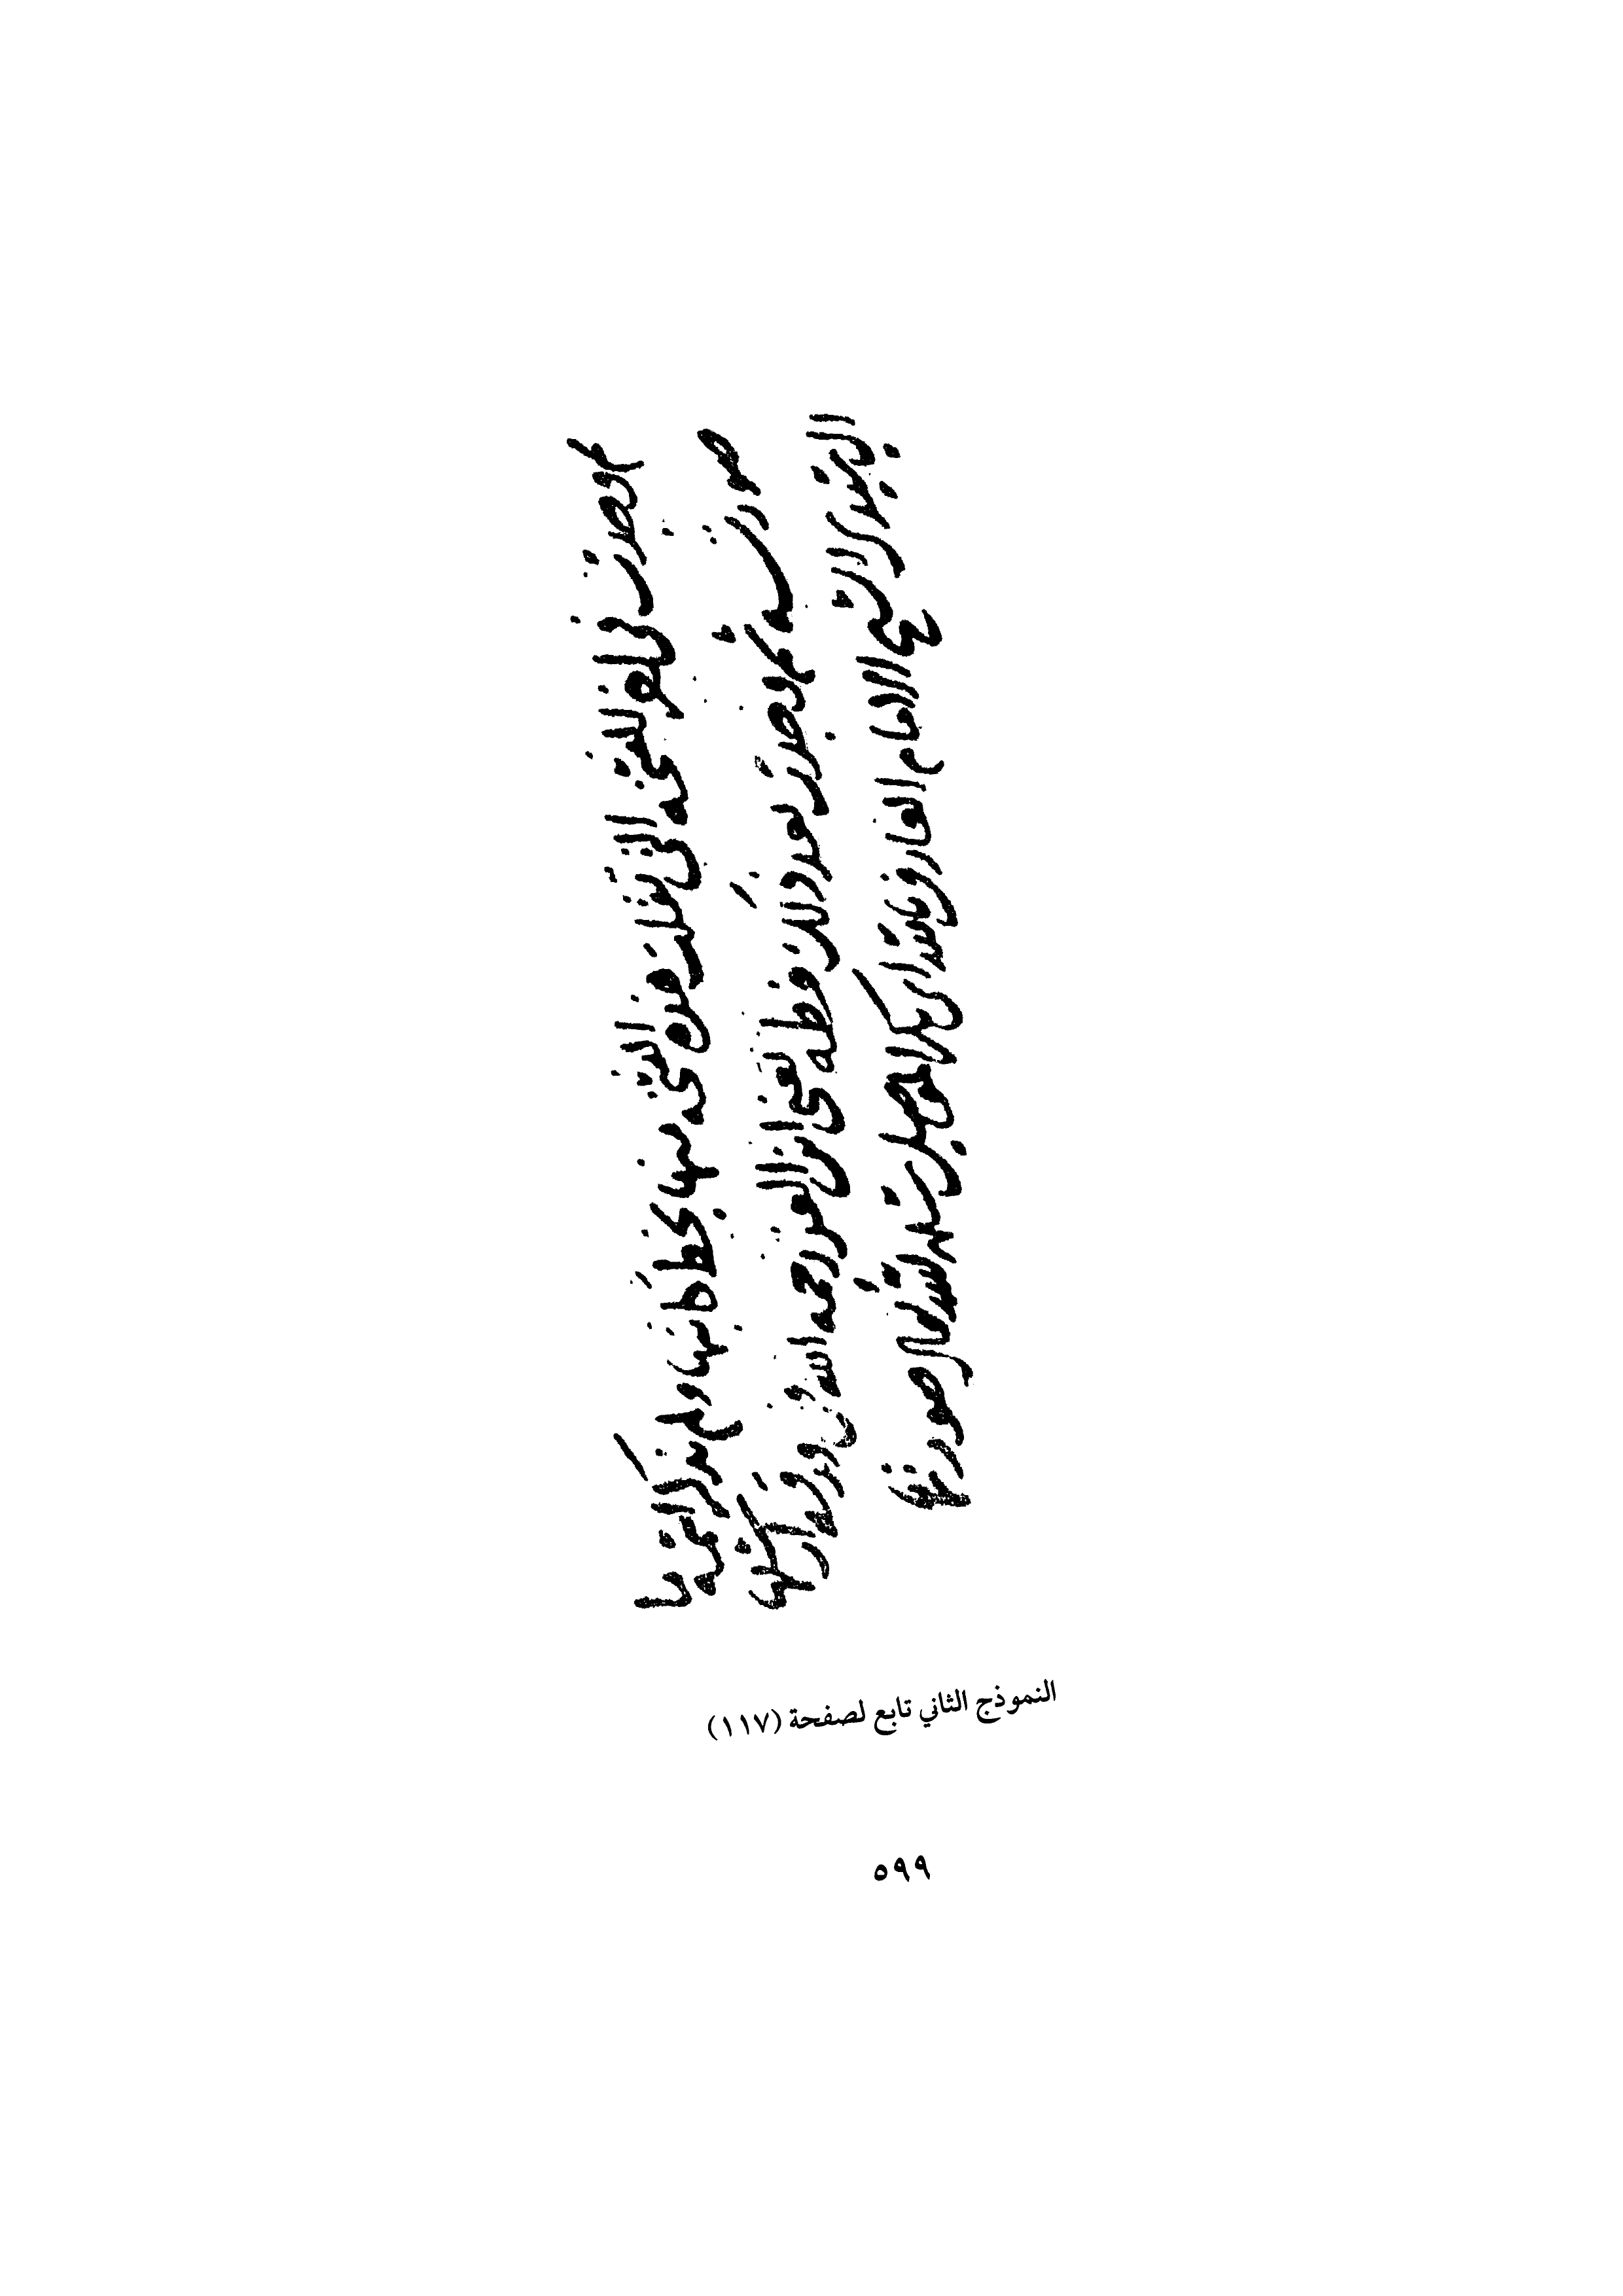 ثم وجدت في للنسخة التي نقلت هذه النسخه منها بخط كاتبها ولم يذكر اسمه ما
صورته ثم وجدت بعد ذلك بخطه يعني ابن العز رحمه الله في ورقه ارسلها
الشيخ الامام العارف بالله ابي بكر الموصلي الله صورتها
النموذج الثاني تابع لصفحة (١١٧)
٥٩٩